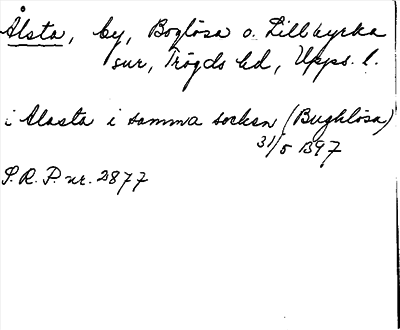 Ålsta, by, Boglösa o. Lillkyrka
snr, Trögds hd, Upps. l.
i Alasta i samma socken (Bughlösa)
31/5 1397
S. R. P. nr. 2877